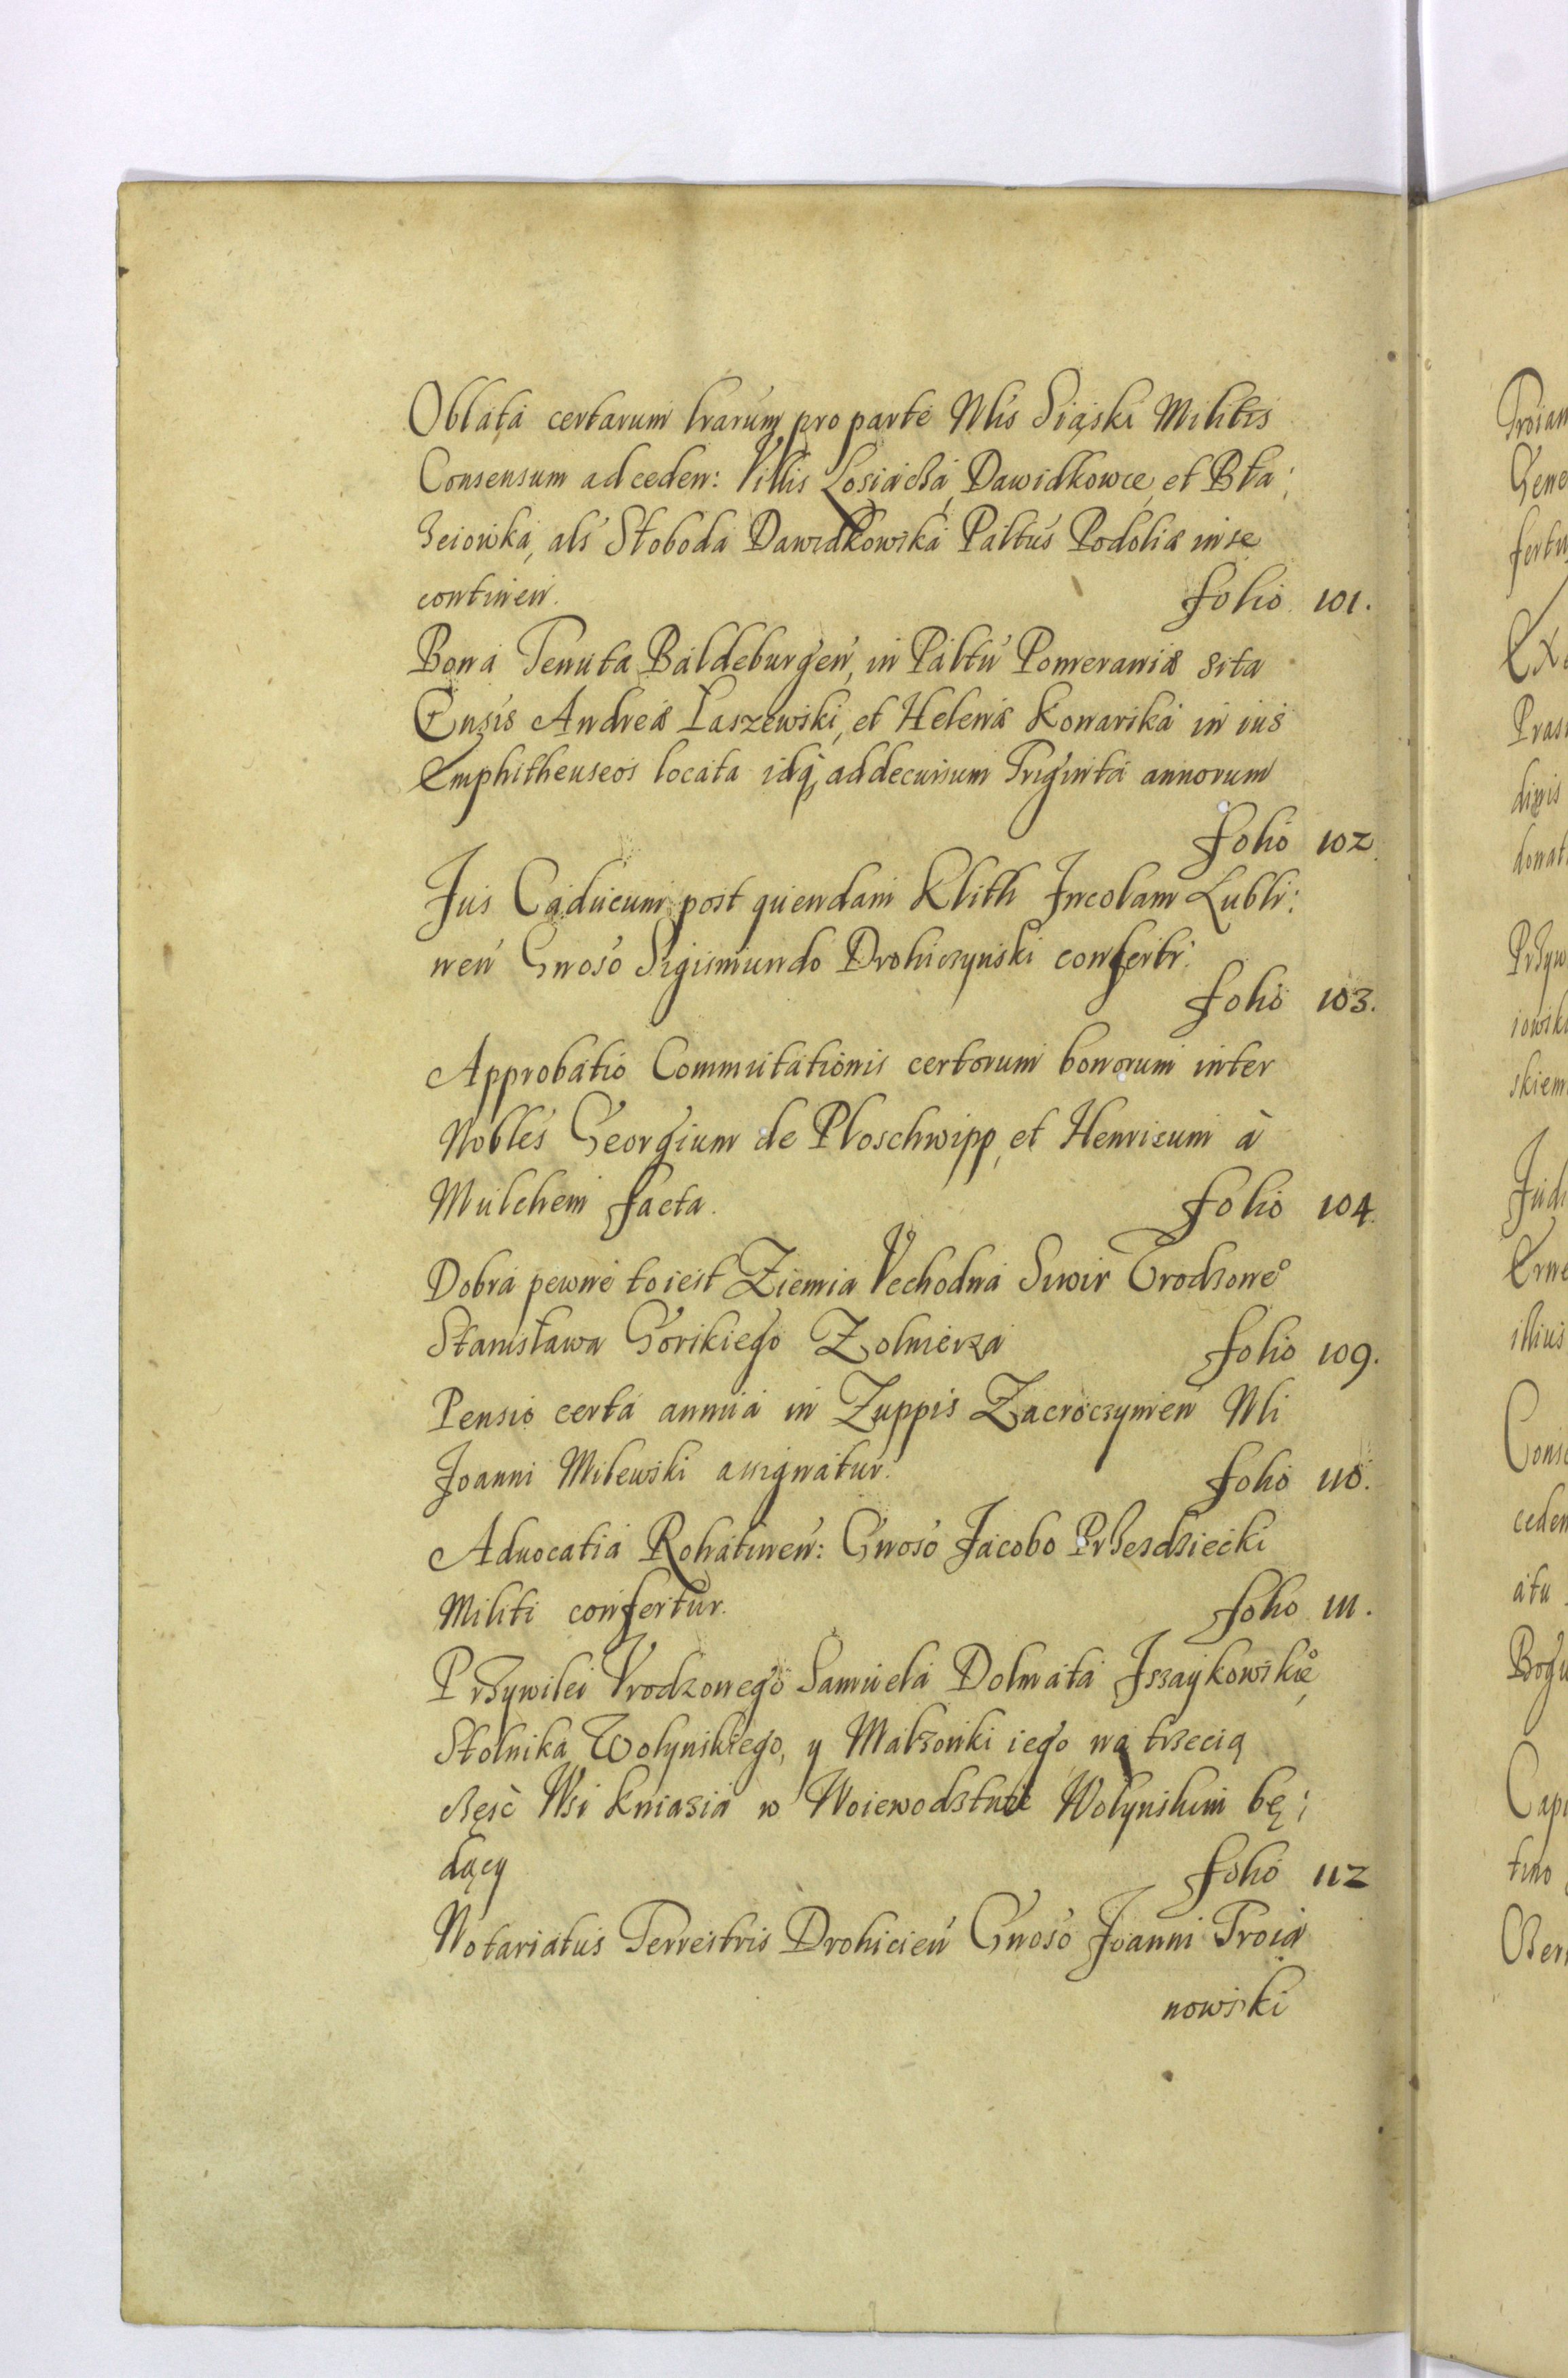 Oblata certarum lrarum pro parte Nlis Siąski Militis
Consensum ad ceden: Villis Losiacka, Dawidkowce, et Bła:
zeiowka, als Słoboda Dawidkowska Paltus Podoliæ in se
continen. folio 101.
Bona Tenuta Baldeburgen, in Paltu Pomeraniæ sita
Gnsis Andreæ Łaszewski, et Helenæ Konarska in ius
Emphitheuseos locata idq, ad decursum Triginta annorum
folio 102.
Ius Caducum post quendam Klith Incolam Lubli:
nen Gnoso Sigismundo Drohiczynski confertr.
folio 103.
Approbatio Commutationis certorum bonorum inter
Nobles Georgium de Ploschwipp, et Henricum à
Mulchem facta. folio 104.
Dobra pewne to iest Ziemia Vechodna Swir Vrodzone°
Stanisława Gorskiego Zolnierza folio 109.
Pensio certa annua in Zuppis Zacroczymen Nli
Joanni Milewski assignatur. folio 110.
Aduocatia Rohatinen: Gnoso Jacobo Przezdziecki
Militi confertur. folio 111.
Przywilei Vrodzonego Samuela Dolmata Jszaykowskie°,
Stolnika Wolynskiego, y Małzonki iego na trzecią
część Wsi Kniazia w Woiewodztwie Wolynskim bę:
dący folio 112
Notariatus Terrestris Drohicien Gnoso Joanni Troia
nowski